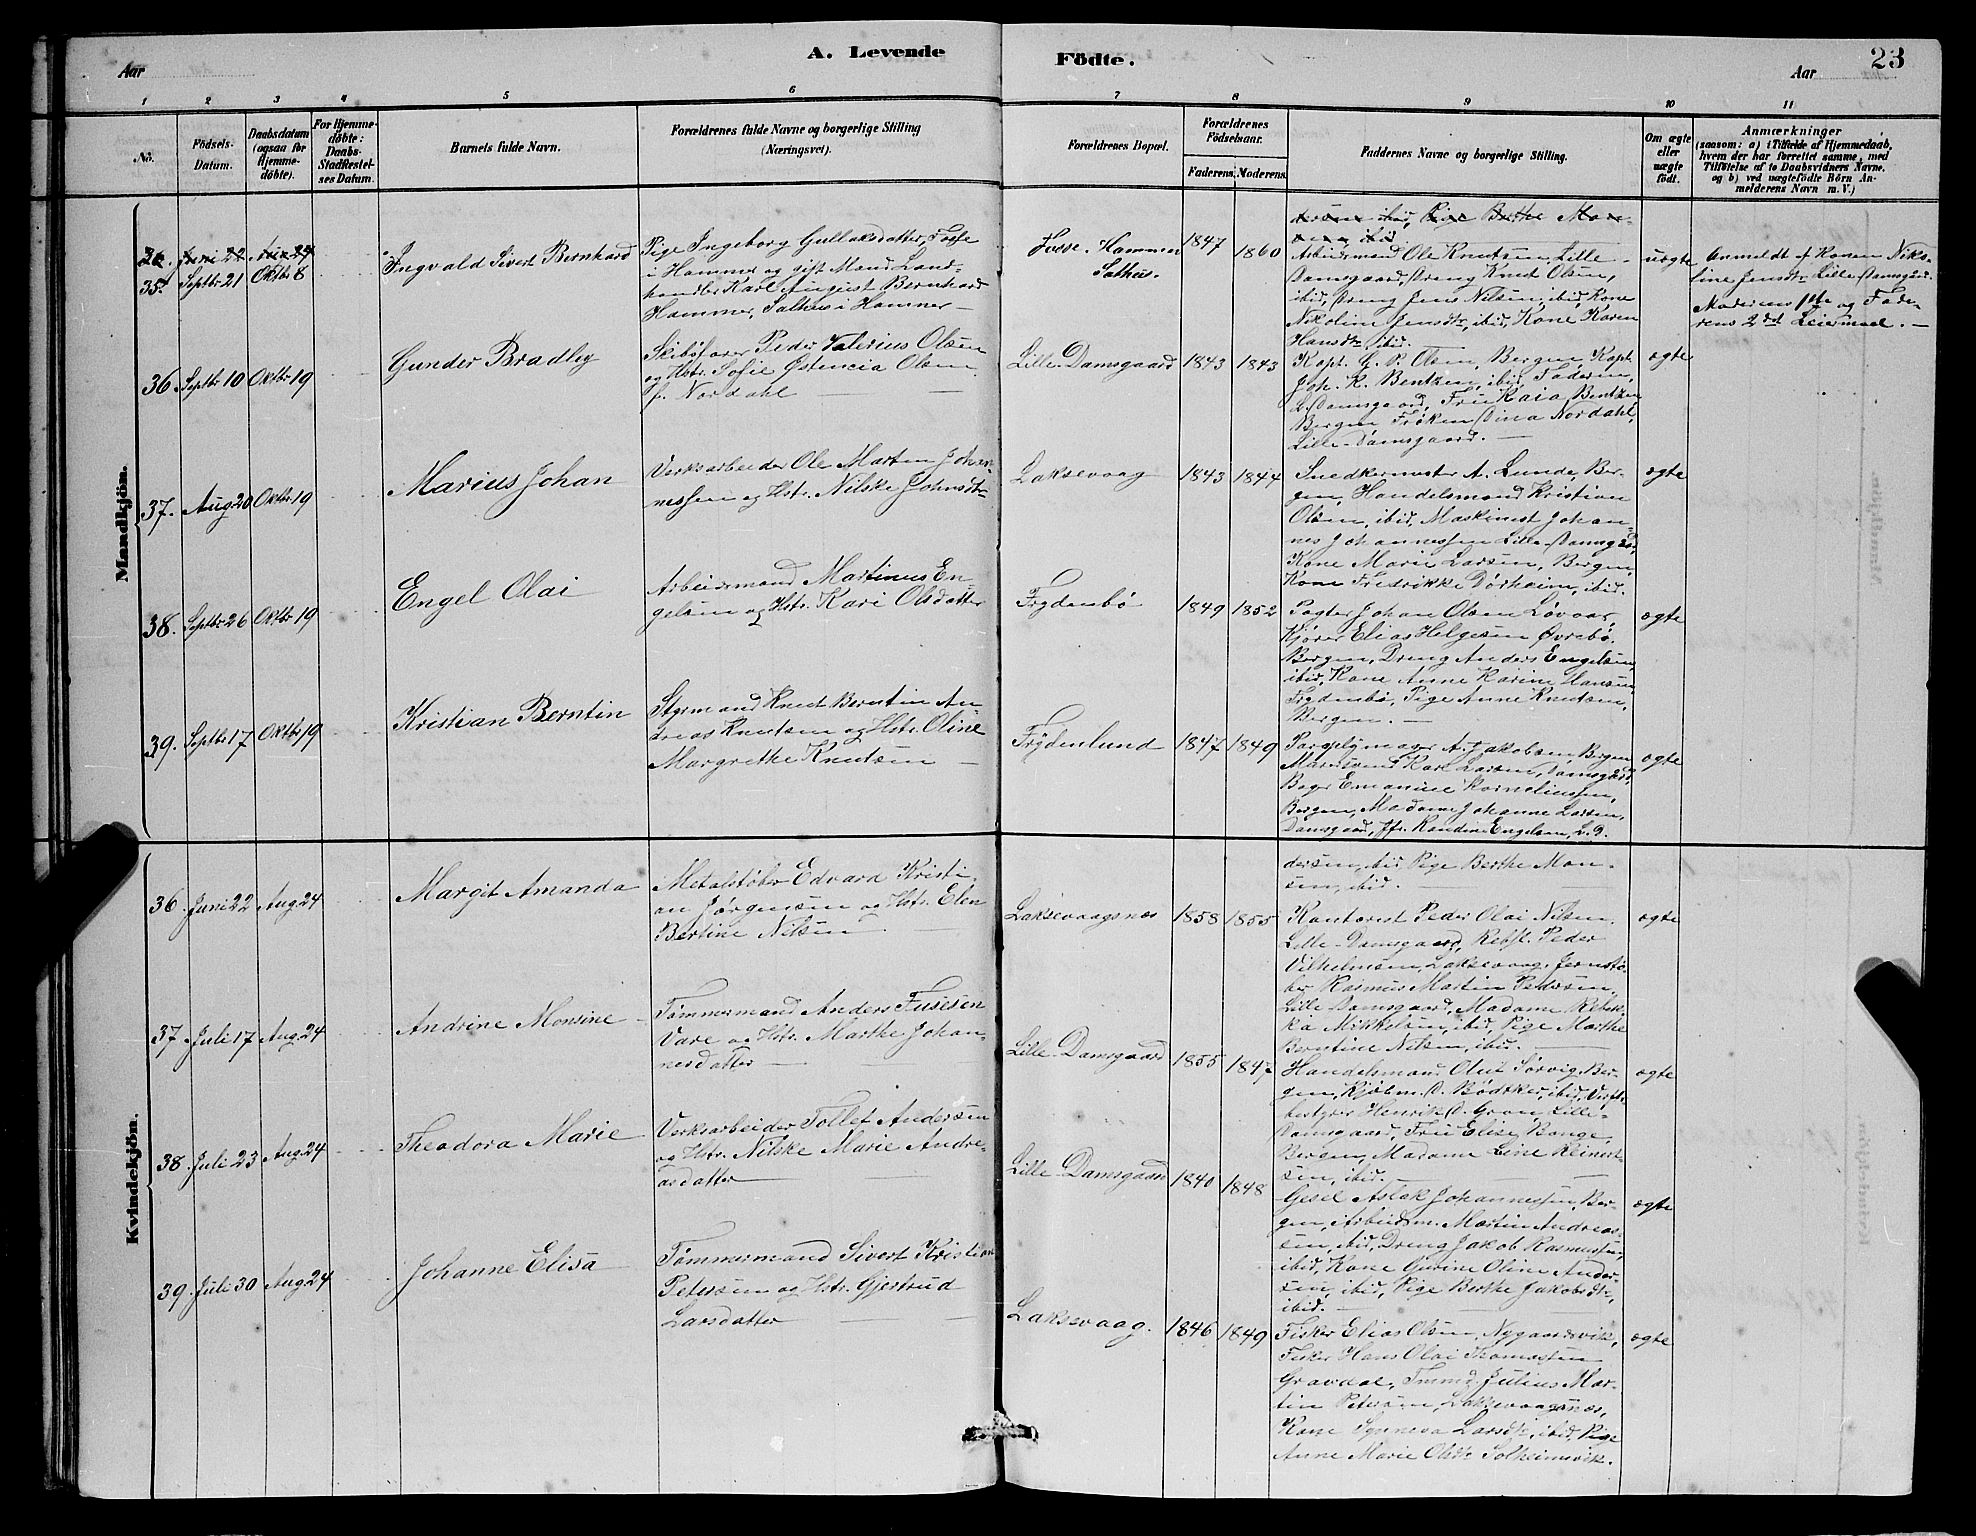 A. Levende
Födte.
23
Aar
Aar
1 2 3 4 5 6 7 8 9 10 11
No.
Födsels-
Datum.
Daabsdatum
(ogsaa for
Hjemme-
döbte).
For Hjemme-
döbte:
Daabs-
Stadfæstel-
ses Datum.
Barnets fulde Navn.
Forældrenes fulde Navne og borgerlige Stilling
(Næringsvei).
Forældrenes Bopæl.
Forældrenes
Födselsaar.
Faderens.
Moderens.
Faddernes Navne og borgerlige Stilling.
Om ægte
eller
uægte
födt.
Anmærkninger
(saasom: a) i Tilfælde af Hjemmedaab,
hvem der har forrettet samme, med
Tilföielse af to Daabsvidners Navne,
og b) ved uægtefödte Börn An-
melderens Navn m. V.)
Mandkjön.
36 Juni 22 Aug 24
35. Septbr 21 Oktbr 8
Ingvald Sivert Bernhard
Pige Ingeborg Gullaksdatter, Fosse
i Hammer og gift Mand Land-
handler Karl August Bernhard
Hammer, Salhus i Hammer —
Fosse, Hammer
Salhus.
1847 1860
dersen ibid, Pige Berthe Mon-
sen, ibid
Arbeidsmand Ole Knutsen, Lille-
Damsgaard, Dreng Knut Olsen,
ibid, Dreng Jens Nilsen, ibid, Kone
Nikoline Jensdtr, ibid, Kone Karen
Hansdtr ibid.
uægte
Anmeldt af Konen Niko-
line Jensdtr Lille Damsgaard.
Moderens 1ste og Fade-
rens 2det Leiermaal. —
36 Septbr 10 Oktbr 19
Gunder Bradley
Skibsfører Peder Valerius Olsen
og Hstr. Sofie Østencia Olsen
f. Nordahl —
Lille-Damsgaard 1843 1843
Kapt. G. P. Olsen, Bergen, Kapt.
Joh. K. Bentzen, ibid, Faderen,
L. Damsgaard, Fru Kaia Bentzen
Bergen Frøken Dina Nordahl,
Lille-Damsgaard. —
ægte
37. Aug 20 Oktbr 19
Marius Johan
Verksarbeider Ole Marten Johan-
nessen og Hstr. Nilske Johnsdtr-
Laksevaag 1843 1844
Snedkermester A. Lunde, Ber-
gen, Handelsmand Kristian
Olsen, ibid, Maskinist Johan-
nes Johannessen Lille-Damsgrd,
Kone Marie Larsen, Bergen,
Kone Fredrikke Dørheim, ibid.
ægte
38. Septbr 26 Oktbr 19
Engel Olai
Arbeidsmand Martinus En-
gelsen og Hstr. Kari Olsdatter
Frydenbö 1849 1852
Pagter Johan Olsen Løvaas,
Kjører Elias Helgesen Øvrebö,
Bergen, Dreng Anders Engelsen,
ibid, Kone Anne Karine Hansen
Frydenbö, Pige Anne Knutsen,
Bergen. —
ægte
39. Septbr 17 Oktbr 19
Kristian Berntin
Styrmand Knut Berntin An-
dreas Knutsen og Hstr. Oline
Margrethe Knutsen —
Frydenlund 1847 1849
A. Jakobsen, Bergen
Karl Larsen, Damsgård,
Bager Emanuel Korneliussen,
Bergen, Madame Johanne Larsen,
Damsgaard, Jfr. Kandine Engelsen, L. D.
ægte
Kvindekjön.
36. Juni 22 Aug 24
Margit Amanda
Metalstøber Edvard Kristi-
an Jørgensen og Hstr. Elen
Bertine Nilsen —
Laksevaagsnes 1858 1855
dersen, ibid Pige Berthe Mon-
sen, ibid. —
Kontorist Peder Olai Nilsen
Lille-Damsgaard, Rebsl. Peder
Vilhelmsen, Laksevaag, Jernstø-
ber Rasmus Martin Pedersen,
Lille Damsgaard, Madame Rebek-
ka Mikkelsen, ibid, Pige Marthe
Berntine Nilsen, ibid. —
ægte
37. Juli 17 Aug 24
Andrine Monsine
Tømmermand Anders Fusesen
Vare og Hstr. Marthe Johan-
nesdatter —
Lille-Damsgaard 1855 1847
Handelsmand Oluf Sørvig, Ber-
gen, Kjøbm. D. Bødtker, ibid,
bestyrer Henrik D. Gran, Lille-
Damsgaard, Fru Elise Bonge,
Bergen, Madame Line Reinert-
sen, ibid. —
ægte
38. Juli 23 Aug 24
Theodora Marie
Verksarbeider Tollef Andersen
og Hstr. Nilske Marie Andre-
asdatter —
Lille-Damsgaard 1840 1848
Gesel Aslak Johannessen, Ber-
gen, Arbeidsm. Martin Andreas-
sen, ibid, Dreng Jakob Rasmussen
ibid, Kone Gurine Oline Ander-
sen, ibid, Pige Berthe Jakobsdtr,
ibid. —
ægte
39. Juli 30 Aug 24
Johanne Elisa
Tømmermand Sivert Kristian
Petersen og Hstr. Gjertrud
Larsdatter —
Laksevaag. 1846 1849
Fisker Elias Olsen, Nygaardsvik,
Fisker Hans Olai Thomassen
Gravdal, Tmmd. Julius Mar-
tin Petersen, Laksevaagsnæs,
Kone Synneva Larsdtr, ibid, Pige
Anne Marie Olsdtr Solheimsvik.
ægte